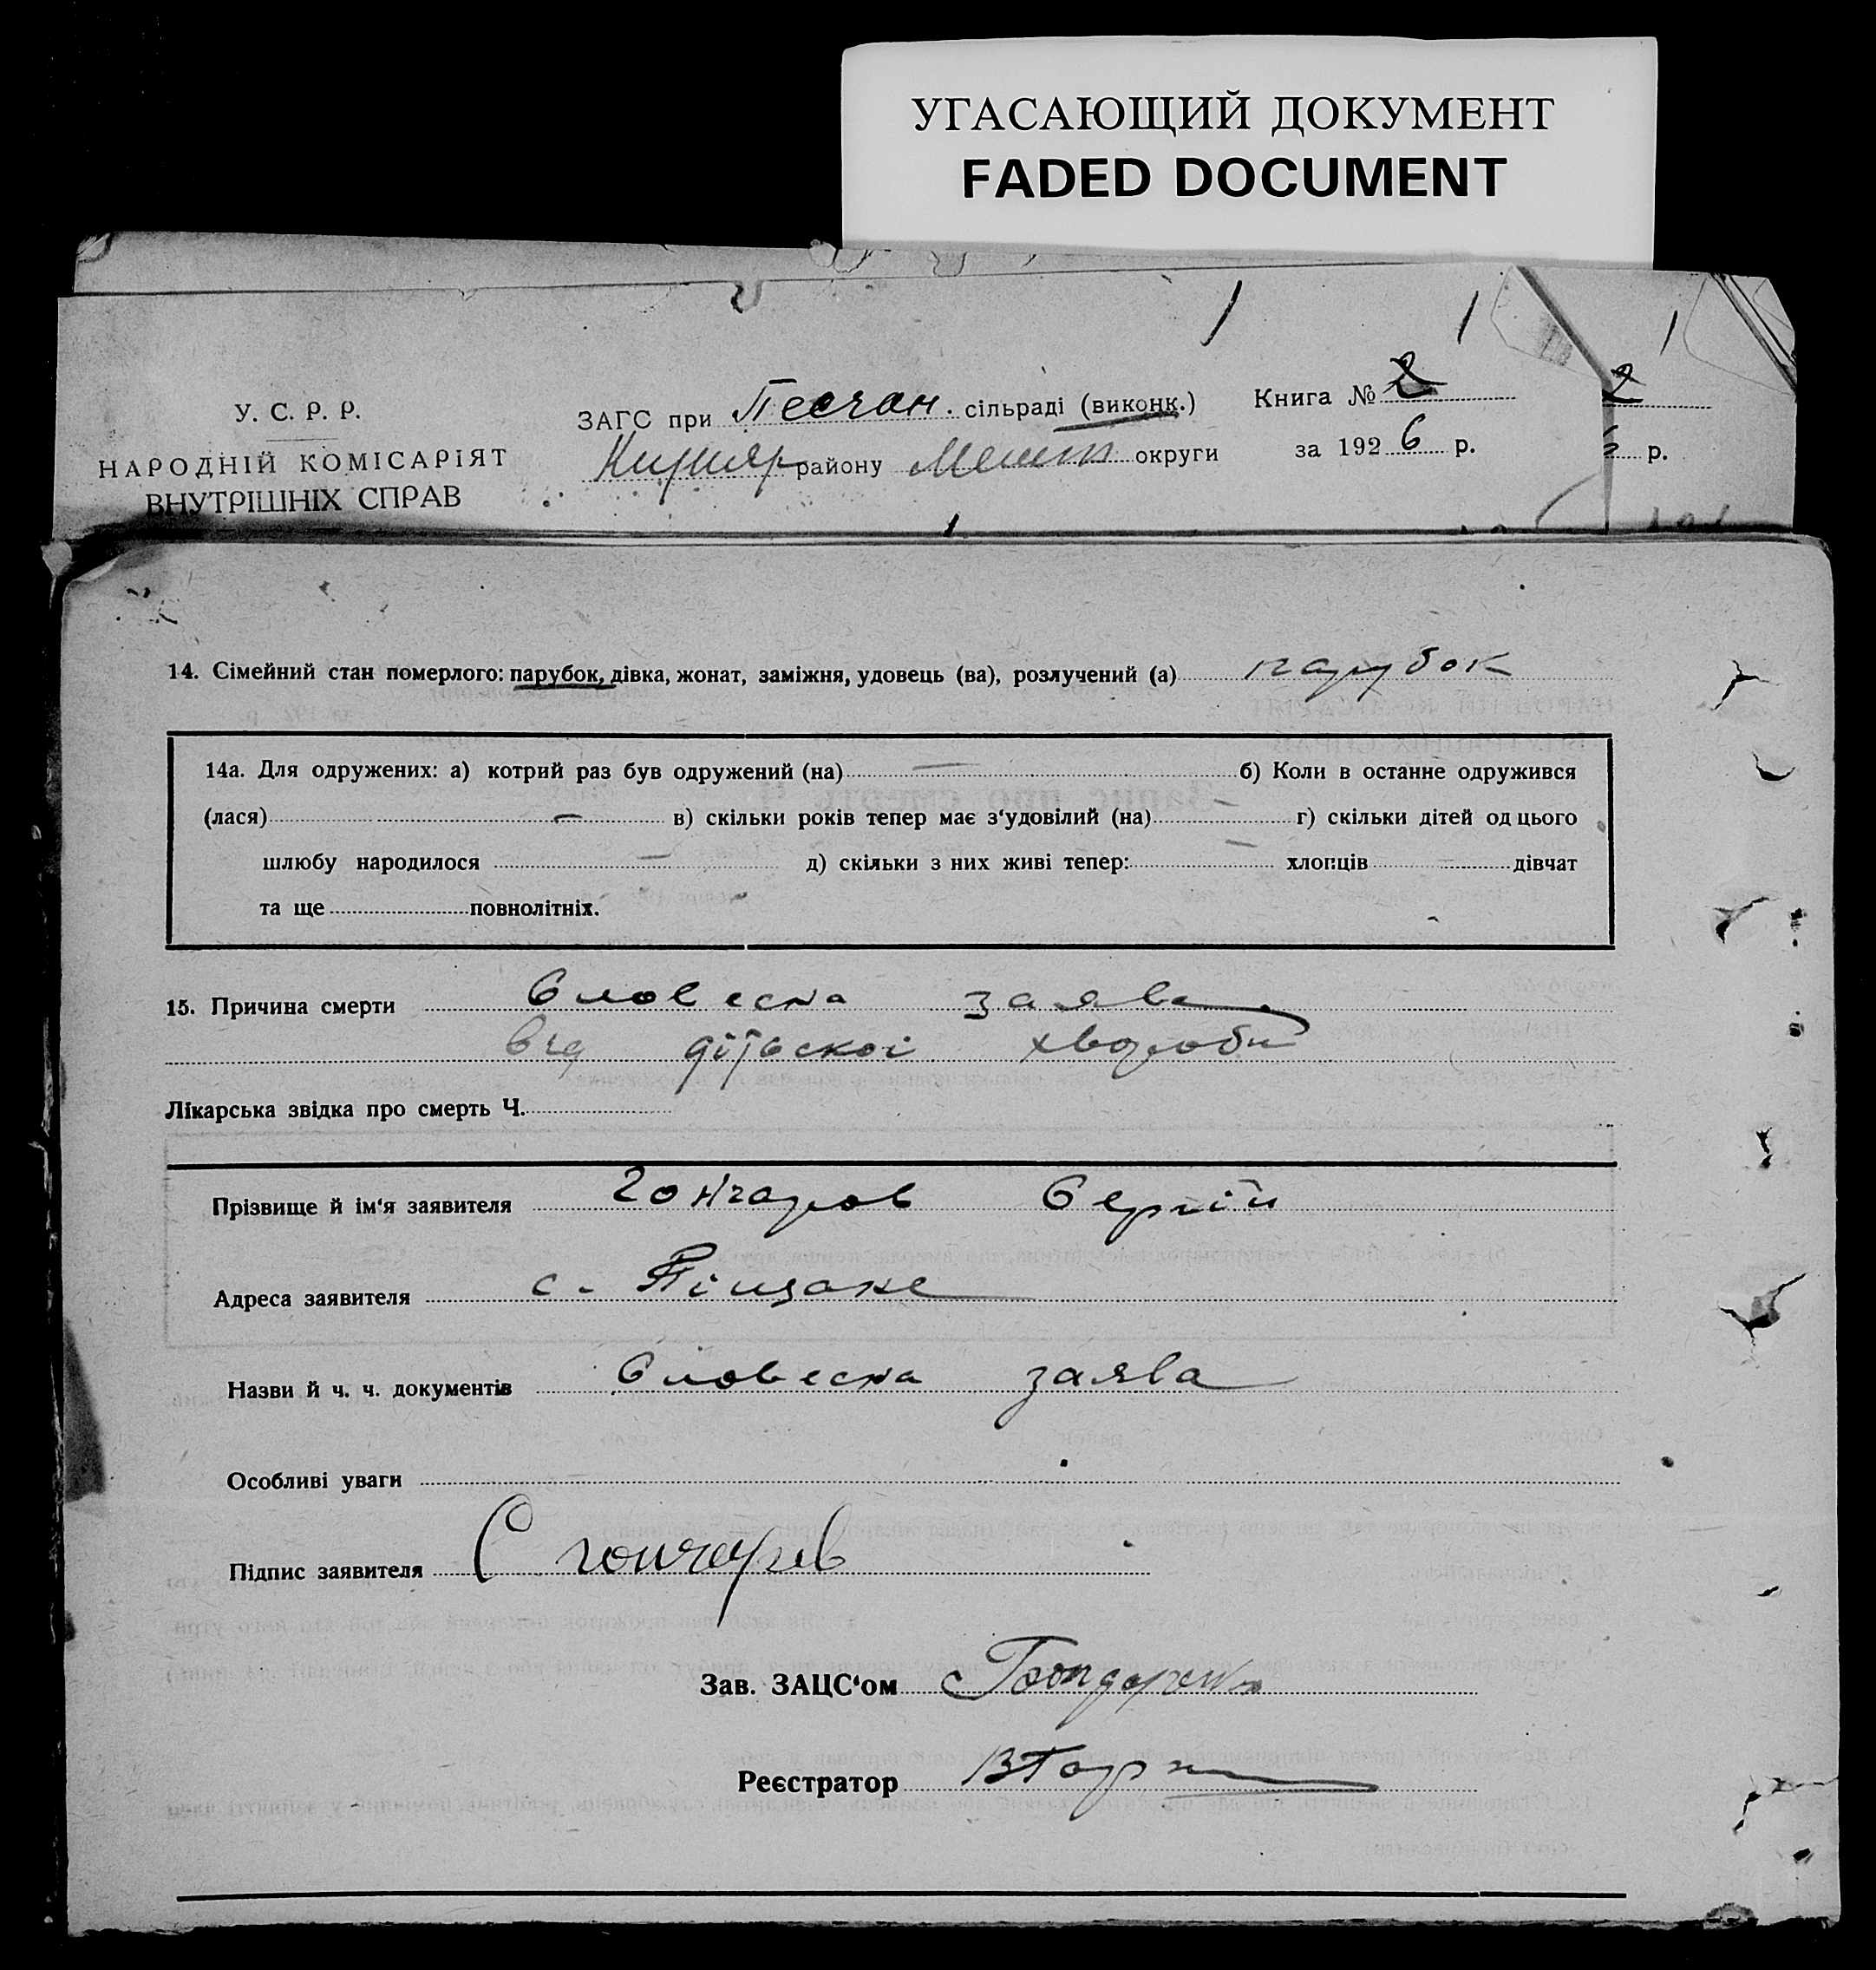 УГАСАЮЩИЙ ДОКУМЕНТ
FADED DOCUMENT
У. С. Р. Р.
НАРОДНІЙ КОМІСАРІЯТ
ВНУТРІШНІХ СПРАВ
ЗАГС при Песчан. сільраді (виконк.)
району округи
Книга № 2
за 1926 р.
2
р.
14. Сімейний стан померлого: парубок, дівка, жонат, заміжня, удовець (ва), розлучений (а) парубок
14а. Для одружених: а) котрий раз був одружений (на) — б) Коли в останне одружився
(лася) — в) скільки років тепер має з‘удовілий (на) — г) скільки дітей од цього
шлюбу народилося — д) скільки з них живі тепер: — хлопців — дівчат
та ще повнолітніх.
15. Причина смерти Словесна заява
від дітьскоі хвороби
Лікарська звідка про смерть Ч.
Прізвище й ім‘я заявителя Гончаров Сергій
Адреса заявителя с. Піщане
Назви й ч. ч. документів Словесна заява
Особливі уваги
Підпис заявителя С Гончаров
Зав. ЗАЦС‘ом Бондаренко
Реєстратор